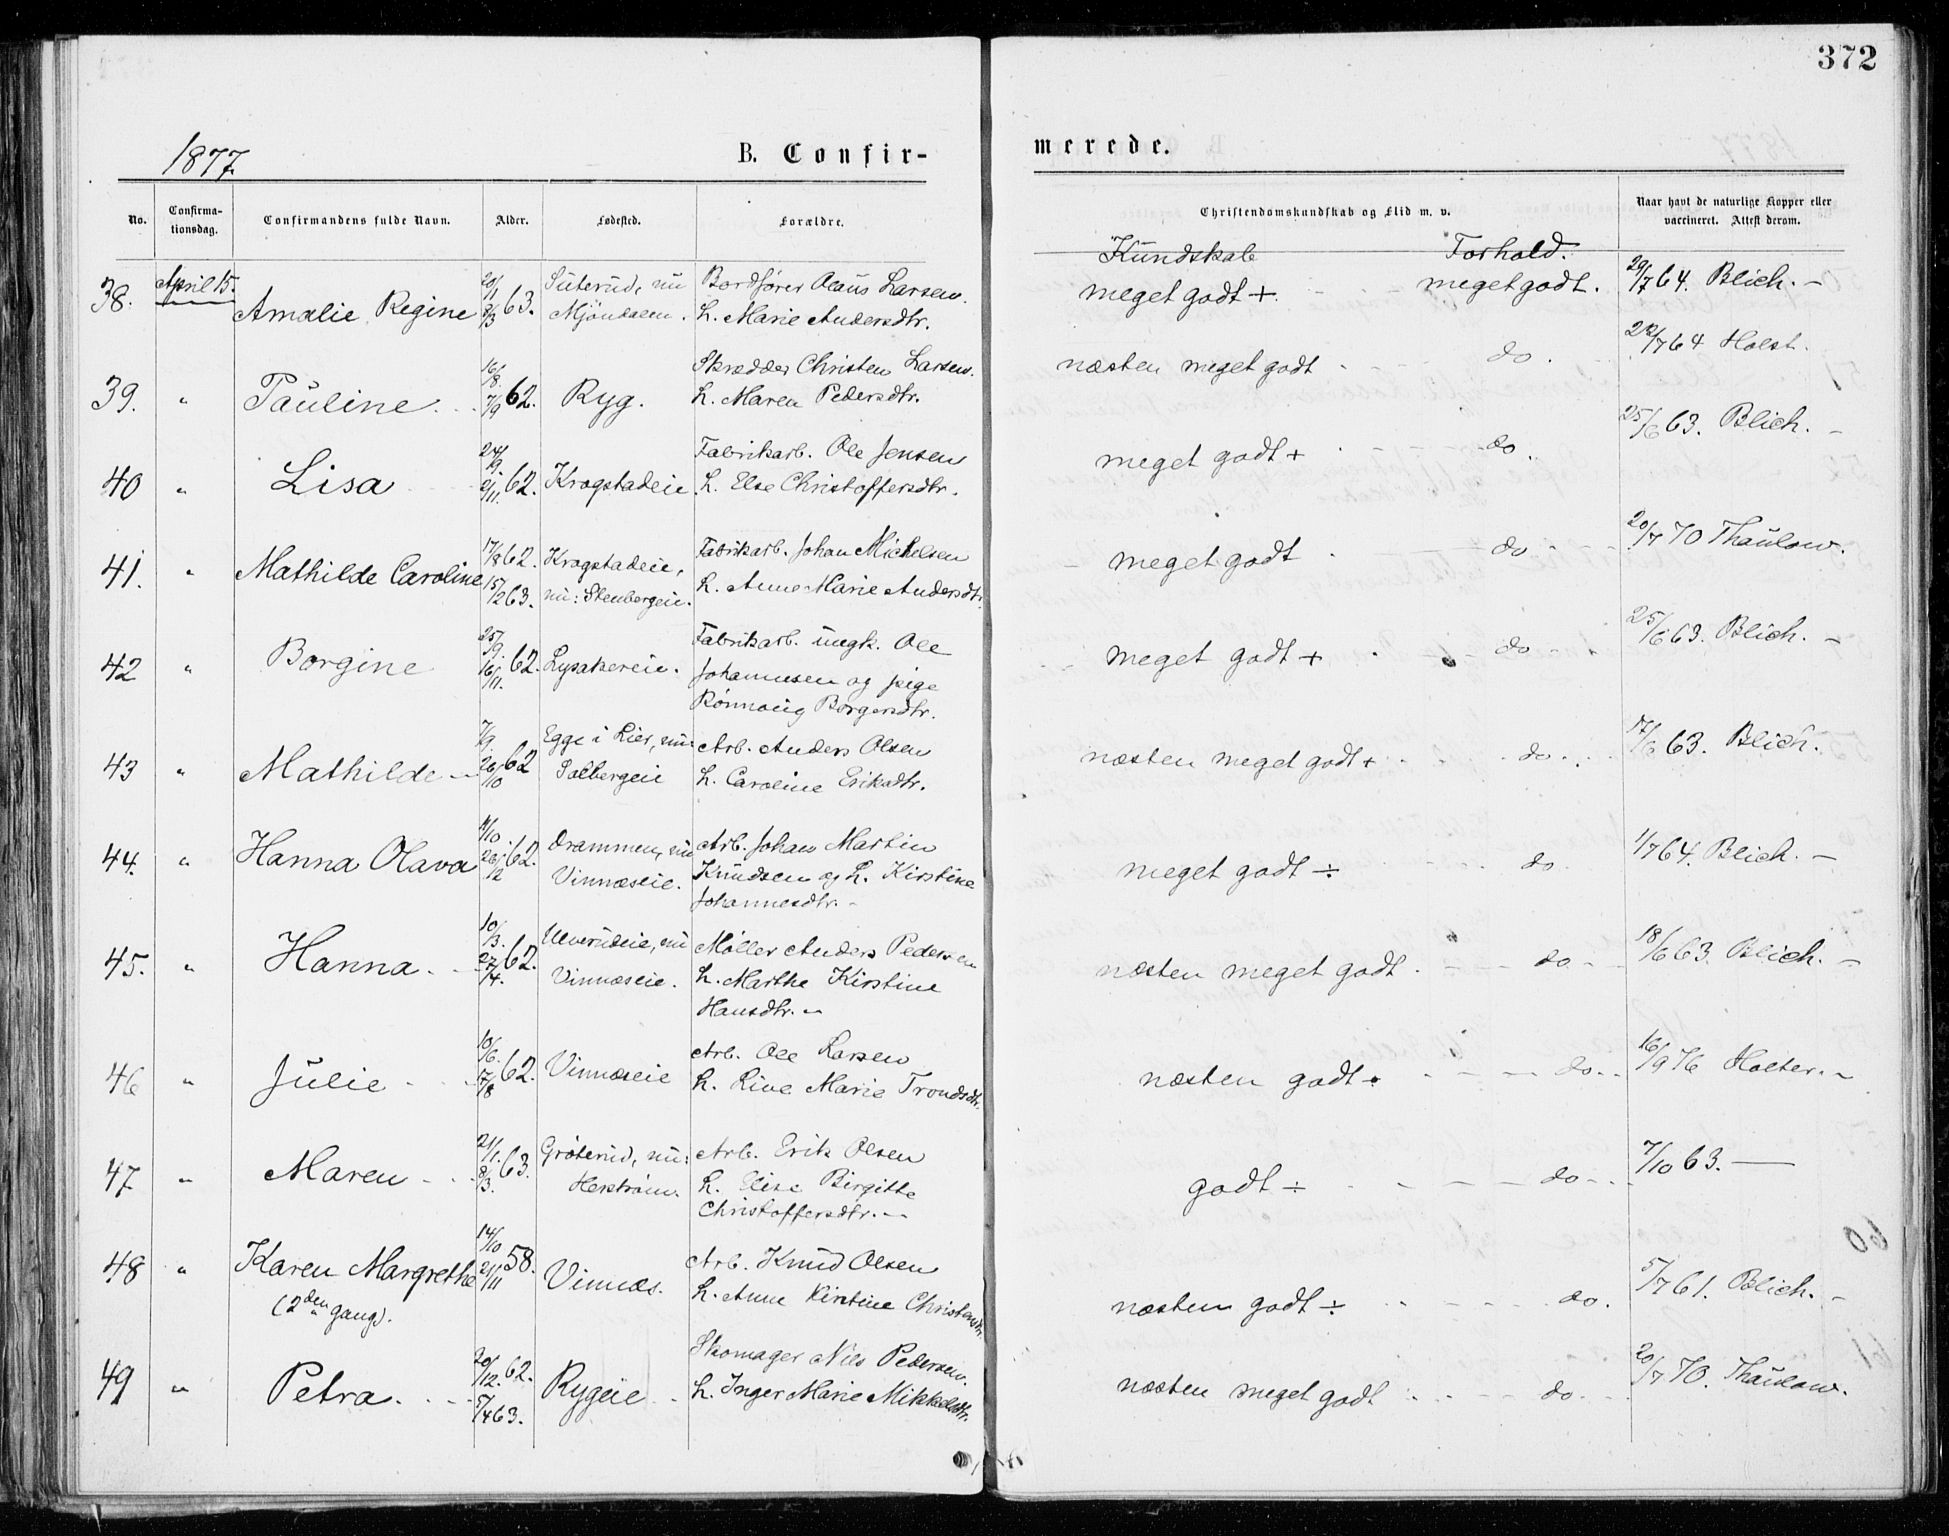 372
1877.
B. Confir-
merede.
No.
Confirma-
tionsdag.
Confirmandens fulde Navn.
Alder.
Fødested.
Forældre.
Christendomskundskab og Flid m. v.
Naar havt de naturlige Kopper eller
vaccineret. Attest derom.
Kundskab Forhold.
38. April 15. Amalie Regine 20/1 8/3 63. Suterud, nu
Mjøndalen. Bordfører Olaus Larsen.
h. Marie Andersdtr.
meget godt + meget godt. 29/7 64. Blich. -
39. " Pauline. 16/8. 7/9 62. Ryg. Skrædder Christen Larsen.
h. Maren Pedersdtr.
næsten meget godt do. 22/7 64 Holst.
40 " Lisa 24/9. 2/11. 62. Krogstadeie Fabrikarb. Ole Jensen
h. Else Christoffersdtr.
meget godt + do. 25/6 63. Blich. -
41. " Mathilde Caroline 17/8 62. 15/2 63. Krogstadeie,
nu: Stenbergeie. Fabrikarb. Johan Michelsen
h. Anne Marie Andersdtr.
meget godt do 20/7 70 Thaulow.
42 " Borgine 25/9. 16/11. 62. Lysakereie. Fabrikarb. ungk. Ole
Johannesen og pige
Rønnaug Borgersdtr.
meget godt + do 25/6 63. Blich. -
43 " Mathilde 7/9. 26/10 62 Egge i Lier, nu:
Solbergeie Arb. Anders Olsen
h. Caroline Eriksdtr.
næsten meget godt + do. 17/6 63. Blich.
44. " Hanna Olava 11/10 26/12 62. Drammen, nu
Vinnæseie. Arb. Johan Martin
Knudsen og h. Kirstine
Johannesdtr. -
meget godt ÷ do 1/7 64. Blich. -
45. " Hanna. 10/3. 27/4. 62. Ulverudeie, nu
Vinnæseie. Møller Anders Pedersen
h. Marthe Kirstine
Hansdtr. -
næsten meget godt. do 18/6 63. Blich. -
46 " Julie 10/6. 17/8 62. Vinnæseie Arb. Ole Larsen
h. Live Marie Trondsdtr.
næsten godt + do 16/9 76 Holter. -
47. " Maren 21/1. 8/3. 63. Grøterud, nu:
Herstrøm. Arb. Erik Olsen
h. Elise Birgitte
Christoffersdtr. -
godt ÷ do 7/10 63. -
48 " Karen Margrethe
(2den gang). 14/10 21/11 58. Vinnæs. Arb. Knud Olsen
h. Anne Kirstine Christensdtr.
næsten godt ÷ do. 5/7 61. Blich. -
49 " Petra. 20/12. 62. 5/4 63. Rygeie Skomager Nils Pedersen.
h. Inger Marie Mikkelsdtr.
næsten meget godt do. 20/7 70. Thaulow.